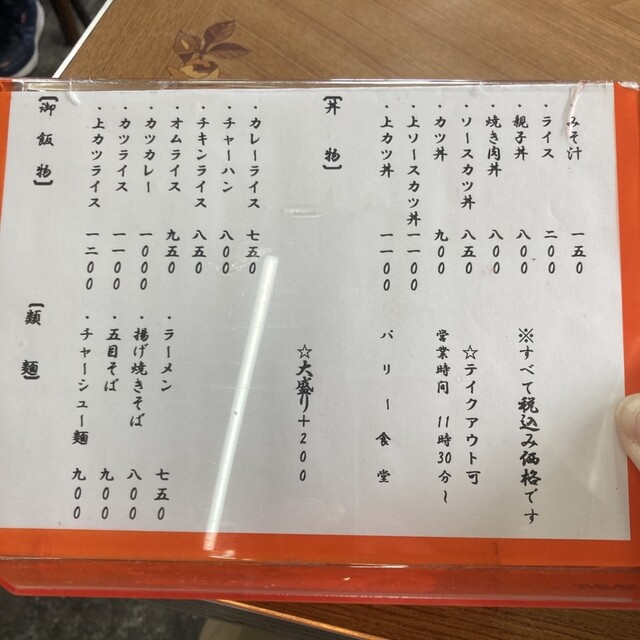 みそ汁 一五〇
・ライス 二〇〇
・親子丼 八〇〇
・焼き肉丼 八〇〇
・ソースカツ丼 八五〇
・カツ丼 九〇〇
・上ソースカツ丼 一一〇〇
・上カツ丼 一一〇〇
【丼物】
※すべて税込み価格です
☆テイクアウト可
営業時間 11時30分〜
バリー食堂
☆大盛り+200
・カレーライス 七五〇
・チャーハン 八〇〇
・チキンライス 八五〇
・オムライス 九五〇
・カツカレー 一〇〇〇
・カツライス 一一〇〇
・上カツライス 一二〇〇
【御飯物】
・ラーメン 七五〇
・揚げ焼きそば 八〇〇
・五目そば 九〇〇
・チャーシュー麺 九〇〇
【麺類】